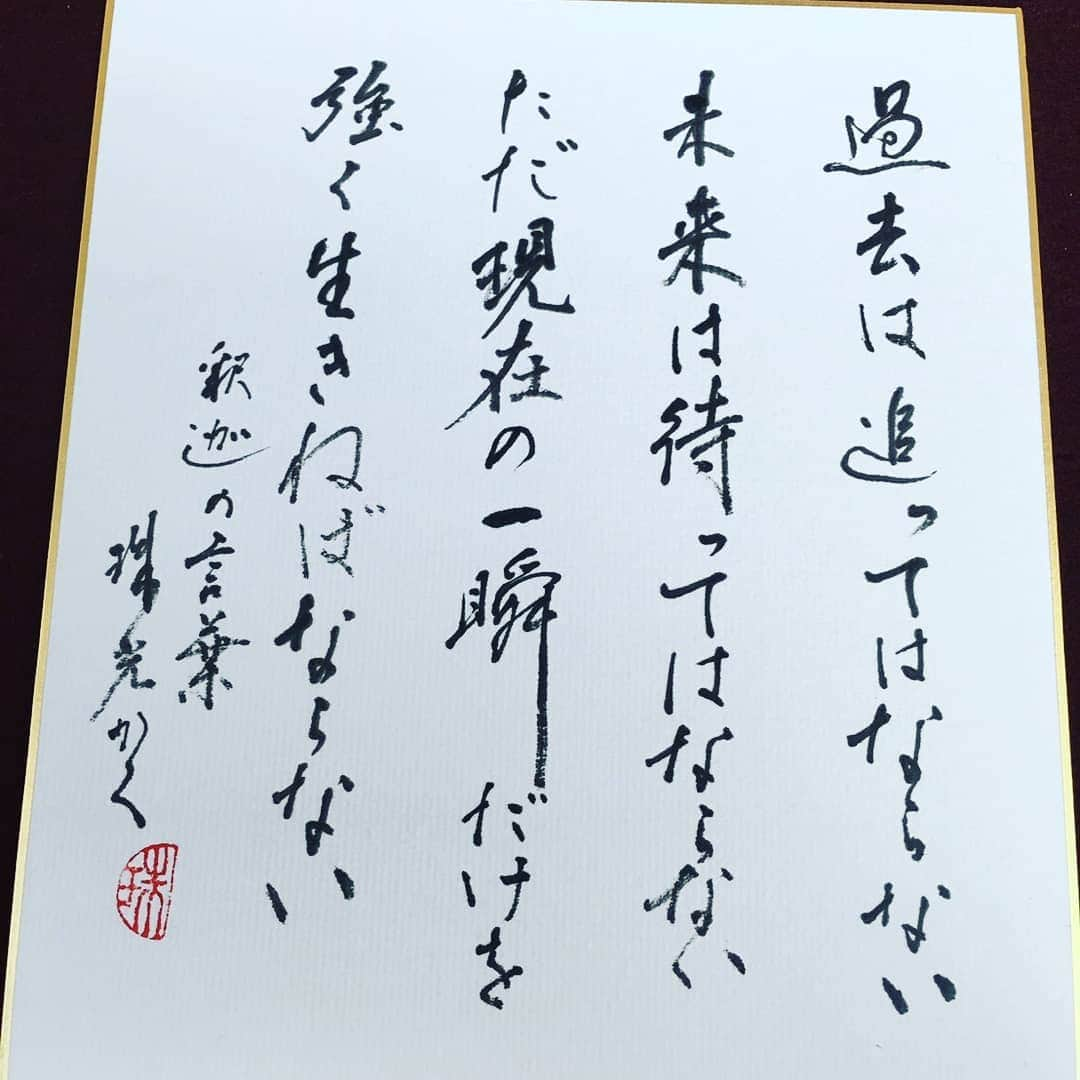 過去は追ってはならない
未来は待ってはならない
ただ現在の一瞬だけを
強く生きねばならない
釈迦の言葉
珠光かく
珠